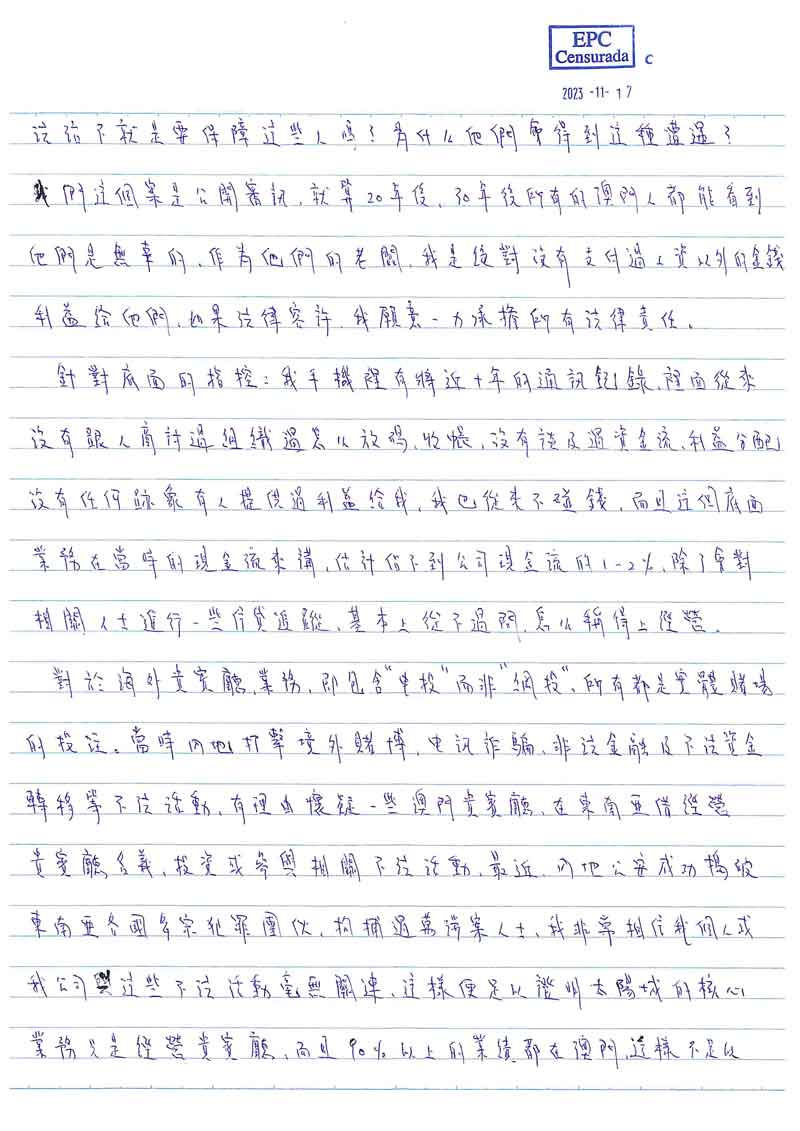 EPC
Censurada
C
2023-11-17
法治不就是要保障这些人嗎？為什么他們會得到这種遭遇？
我們這個案是公開審訊，就算20年後，30年後所有的澳門人都能看到
他們是無辜的，作為他們的老闆，我是絕對沒有支付過人資以外的金錢
利益給他們，如果法律容許，我願意一力承擔所有法律責任。
針對底面的指控：我手機裡有將近十年的通訊記錄，裡面從來
沒有跟人商討過組織過怎么放碼、收帳，沒有談及過資金流、利益分配
沒有任何跡象有人提供過利益給我，我也從來不碰錢，而且這個底面
業務在當時的現金流來講，估計佔不到公司現金流的1-2%，除了會對
相關人士進行一些信貸追蹤，基本上從不過問，怎么稱得上經營。
對於海外貴賓廳業務，即包含“電投”而非“網投”，所有都是實體賭場
的投注。當時內地打擊境外賭博，电訊诈騙、非法金融及不法資金
轉移等不法活動，有理由懷疑一些澳門貴賓廳，在東南亚借經營
貴賓廳名義，投资或參與相關不法活動，最近，內地公安成功搗破
東南亚各國多宗犯罪團伙，拘捕過萬涉案人士，我非常相信我個人或
我公司與這些不法活動毫無關連，這樣便足以證明太陽城的核心
業務只是經營貴賓廳，而且90%以上的業績都在澳門，這樣不足以